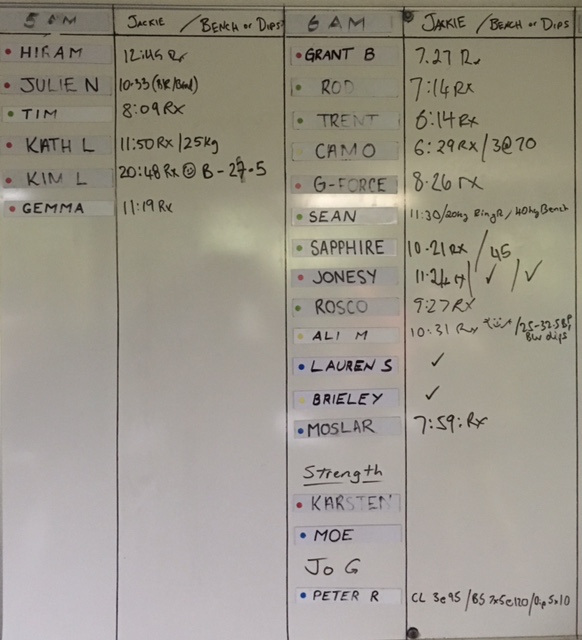 5 AM JACKIE / BENCH or DIPS
HIRAM 12:45 Rx
JULIE N 10:33 (B/R/Band)
TIM 8:09 Rx
KATH L 11:50 Rx / 25kg
KIM L 20:48 Rx B-27.5
GEMMA 11:19 Rx
6 AM JACKIE / BENCH or DIPS
GRANT B 7.27 Rx
ROD 7:14 Rx
TRENT 6:14 Rx
CAMO 6:29 Rx / 3@70
G-FORCE 8.26 rx
SEAN 11:30/20kg RingR/40kg Bench
SAPPHIRE 10.21 Rx / 45
JONESY / ✓ / ✓
ROSCO 9:27 Rx
ALI M 10:31 Rx /25-32.5 BP
BW dips
LAUREN S ✓
BRIELEY ✓
MOSLAR 7:59: Rx
Strength
KARSTEN
MOE
Jo G
PETER R CL 3@95 / BS 7x5@120 / Dip 5x10